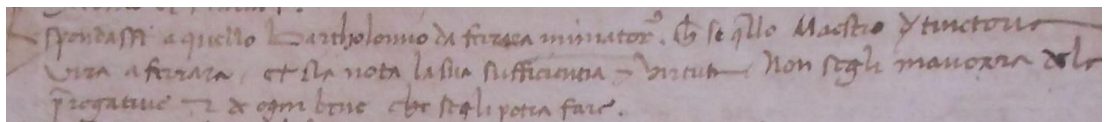 spondassi a quello Bartholomio da ferrara miniatore. Ch se qllo Maestro pytinctore
vera a ferrara, et sia nota la sua sufficientia & virtute Non segli manoxera dele
prerogative & de ogni bene che segli potra fare.